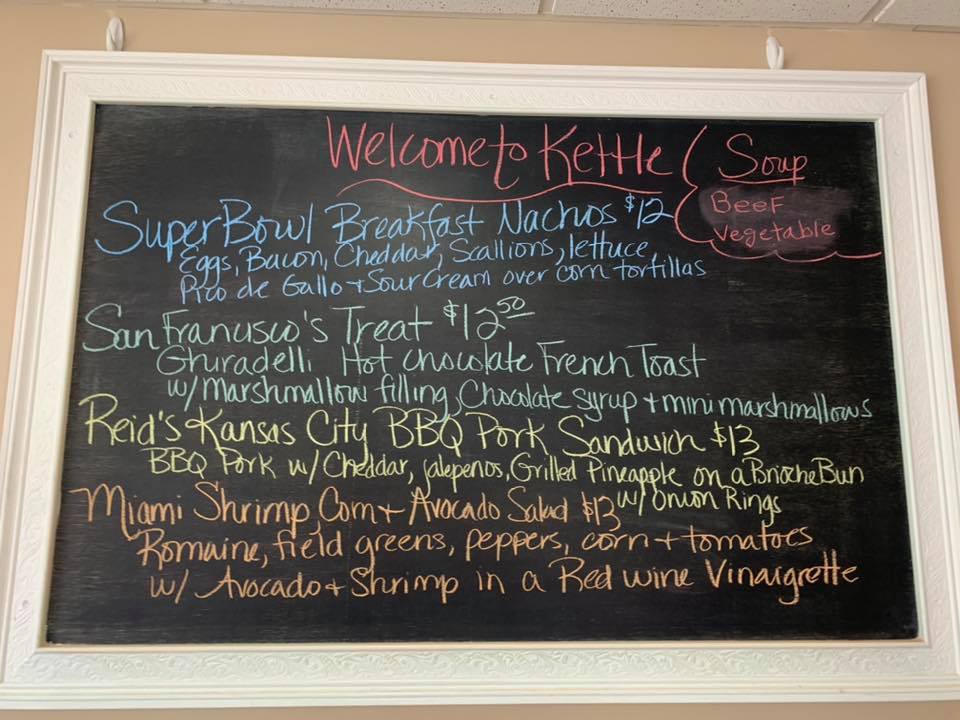 Welcome to Kettle
Soup
Beef
Vegetable
SuperBowl Breakfast Nachos $12
Eggs, Bacon, Cheddar, Scallions, lettuce,
Pico de Gallo + Sour Cream over corn tortillas
San Francusco's Treat $12.50
Ghiradelli Hot chocolate French Toast
w/ marshmallow filling, Chocolate syrup + mini marshmallows
Reid's Kansas City BBQ Pork Sandwich $13
BBQ Pork w/ Cheddar, jalepenos, Grilled Pineapple on a Brioche Bun
w/ Onion Rings
Miami Shrimp, Corn + Avocado Salad $13
Romaine, field greens, peppers, corn + tomatoes
w/ Avocado + Shrimp in a Red wine Vinaigrette